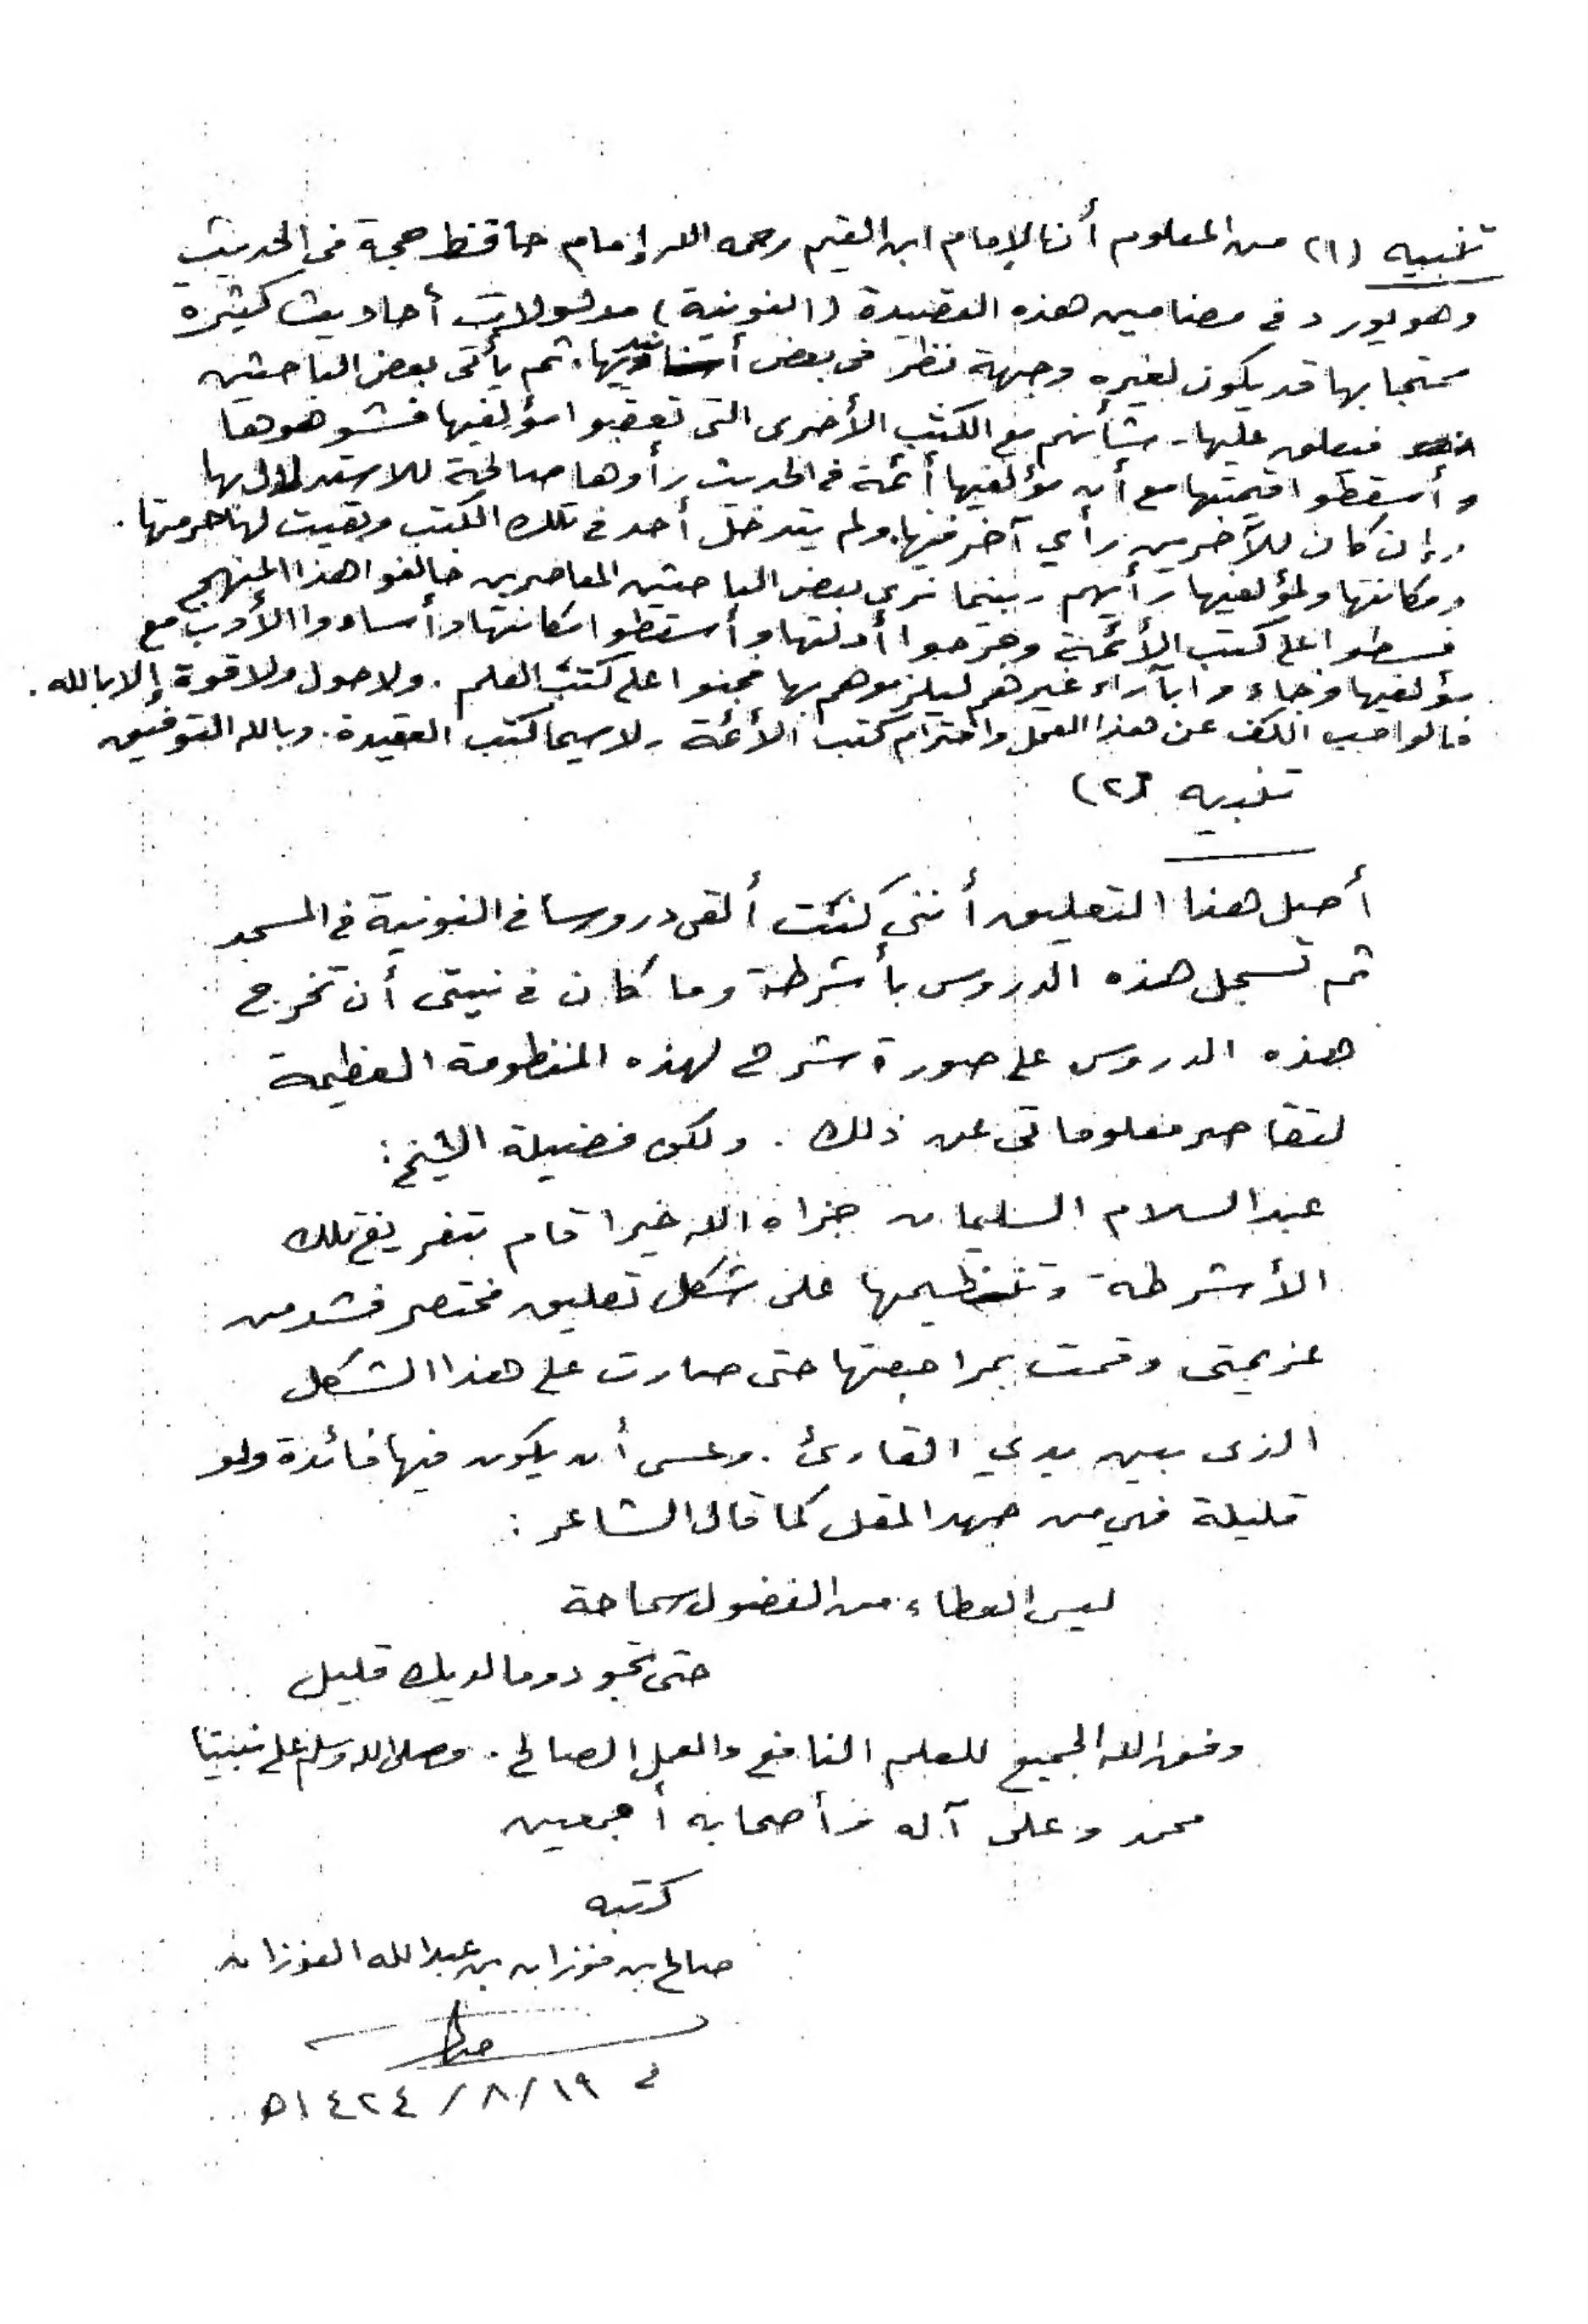 تنبيه (١) من المعلوم أن الإمام ابن القيم رحمه الله إمام حافظ حجة في الحديث
وهو يورد في مضامين هذه القصيدة (النونية) مدلولات أحاديث كثيرة
محتجا بها قد يكون لغيره وجهة نظر في بعض أسانيدها. ثم يأتي بعض الباحثين
فيعلق عليها - شأنهم مع الكتب الأخرى التي تعقبوا مؤلفيها فشوهوها
وأسقطوا قيمتها مع أن مؤلفيها أئمة في الحديث رأوها صالحة للاستدلال بها
وإن كان للآخرين رأي آخر فيها. ولم يتدخل أحد في تلك الكتب وبقيت لها حرمتها.
ومكانتها ولمؤلفيها رأيهم - بينما نرى بعض الباحثين المعاصرين خالفوا هذا المنهج
فسطوا على كتب الأئمة وجرحوا أدلتها وأسقطوا مكانتها وأساءوا الأدب مع
مؤلفيها وجاءوا بآراء غيرهم ليلزموهم بها فجنوا على كتب العلم. ولا حول ولا قوة إلا بالله.
فالواجب الكف عن هذا العمل واحترام كتب الأئمة - لا سيما كتب العقيدة. وبالله التوفيق
تنبيه (٢)
أصل هذا التعليق أنني كنت ألقي دروسا في النونية في المسجد
ثم تسجل هذه الدروس بأشرطة وما كان في نيتي أن تخرج
هذه الدروس على صورة شرح لهذه المنظومة العظيمة
لتقاصر معلوماتي عن ذلك. ولكن فضيلة الشيخ:
عبد السلام السليمان جزاه الله خيرا قام بتفريغ تلك
الأشرطة وتنظيمها على شكل تعليق مختصر فشد من
عزيمتي وقمت بمراجعتها حتى صارت على هذا الشكل
الذي بين يدي القارئ. وعسى أن يكون فيها فائدة ولو
قليلة فهي من جهد المقل كما قال الشاعر:
ليس العطاء من الفضول سماحة
حتى تجود وما لديك قليل
وفق الله الجميع للعلم النافع والعمل الصالح. وصلى الله وسلم على نبينا
محمد وعلى آله وأصحابه أجمعين
كتبه
صالح بن فوزان بن عبد الله الفوزان
في ١٩/٨/١٤٢٤ه